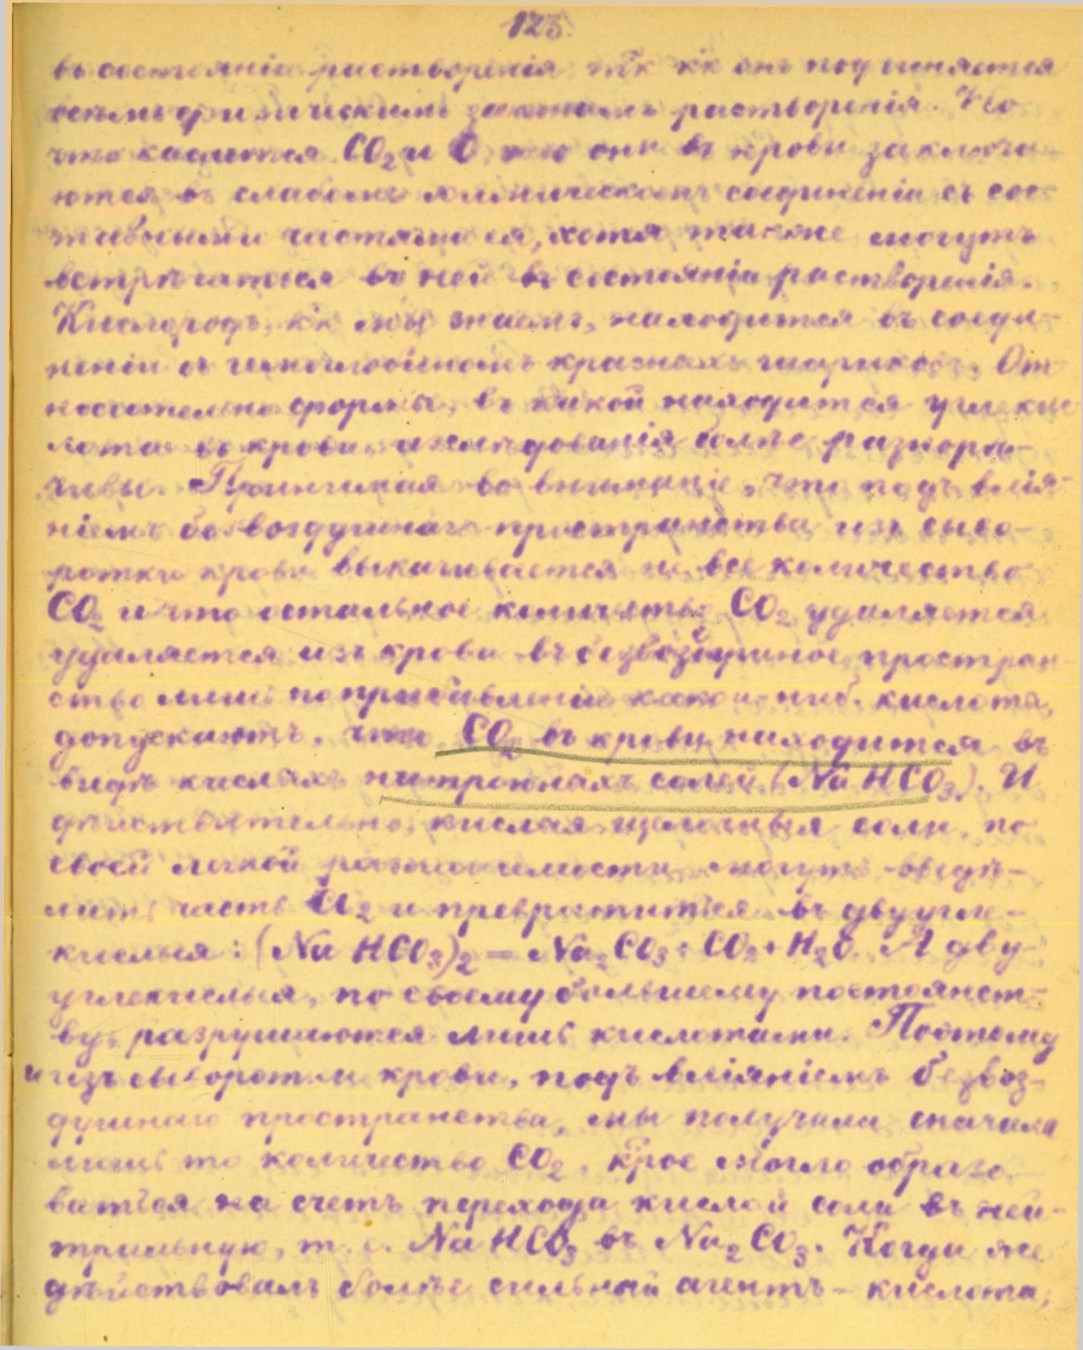 123.
въ состоянiи растворенiя, тк кк онъ подчиняется
всѣмъ физическимъ законамъ растворенiя. Но
что касается CO2 и O, то они въ крови заключа-
ются въ слабомъ химическомъ соединенiи съ сос-
тавными частями ея, хотя также могутъ
встрѣчаться въ ней въ состоянiи растворенiя.
Кислородъ, кк мы знаемъ, находится въ соеди-
ненiи съ гемоглобиномъ красныхъ шариковъ. От-
носительно формы, въ какой находится углекис-
лота въ крови, изслѣдованiя болѣе разнорѣ-
чивы. Принимая во вниманiе, что подъ влiя-
нiемъ безвоздушнаго пространства изъ сыво-
ротки крови выкачивается не все количество
CO2 и что остальное количество CO2 удаляется
удаляется изъ крови въ безвоздушное простран-
ство лишь по прибавленiи какой-ниб. кислоты,
допускаютъ, что CO2 въ крови находится въ
видѣ кислыхъ натронныхъ солей (NaHCO3). И
дѣйствительно, кислыя щелочныя соли, по
своей легкой разложимости могутъ -выдѣ-
лить часть CO2 и превратиться въ двуугле-
кислыя: (NaHCO3)2 = Na2CO3 + CO2 + H2O. А дву-
углекислыя, по своему большему постоянст-
ву, разрушаются лишь кислотами. Поэтому
и изъ сыворотки крови, подъ влiянiемъ безвоз-
душнаго пространства, мы получили сначала
лишь то количество CO2, крое могло образо-
ваться на счетъ перехода кислой соли въ ней-
тральную, т. е. NaHCO3 въ Na2CO3. Когда же
дѣйствовалъ болѣе сильный агентъ - кислота,